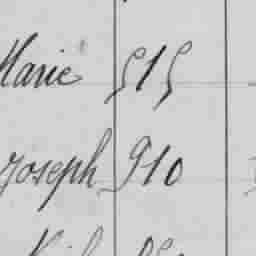 Marie 515
Joseph 910